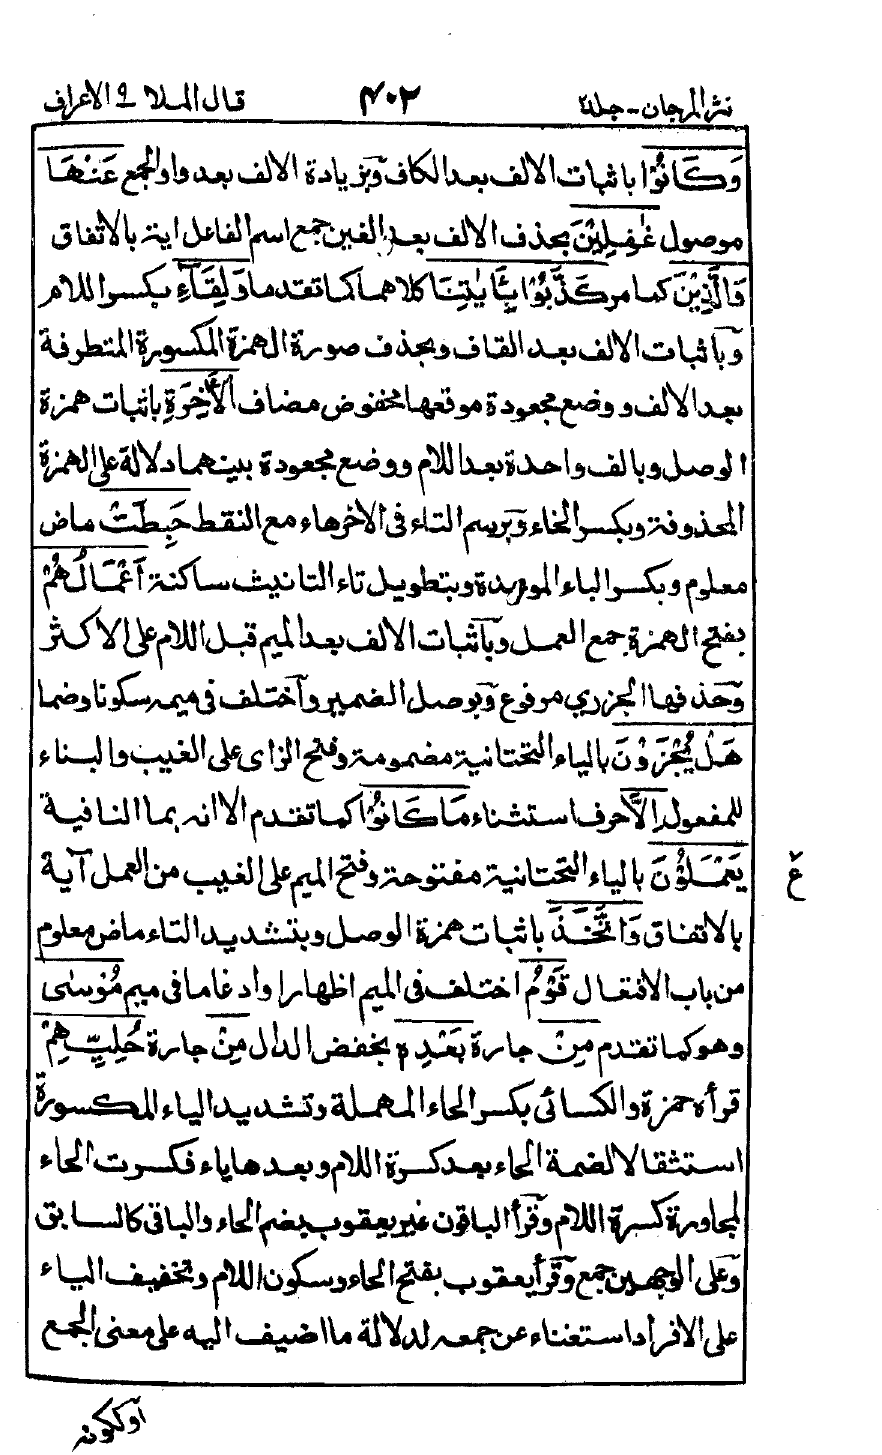 نثر المرجان - جلد ٢
٤٠٢
قال الملا ٩ الاعراف
وَكَانُوْا باثبات الالف بعد الكاف وبزيادة الالف بعد واو الجمع عَنْهَا
موصول غٰفِلِيْنَ بحذف الالف بعد الغين جمع اسم الفاعل اية بالاتفاق
وَالَّذِيْنَ كما مر كَذَّبُوْا بِاٰيٰتِنَا كلاهما كما تقدما وَلِقَآءِ بكسر اللام
وباثبات الالف بعد القاف وبحذف صورة الهمزة المكسورة المتطرفة
بعد الالف ووضع مجعودة موقعها مخفوض مضاف الْاٰخِرَةِ باثبات همزة
الوصل وبالف واحدة بعد اللام ووضع مجعودة بينهما دلالة على الهمزة
المحذوفة وبكسر الخاء وبرسم التاء فى الاخر هاء مع النقط حَبِطَتْ ماض
معلوم وبكسر الباء الموحدة وبتطويل تاء التانيث ساكنة اَعْمَالُهُمْ
بفتح الهمزة جمع العمل وباثبات الالف بعد الميم قبل اللام على الاكثر
وحذفها الجزري مرفوع وبوصل الضمير واختلف فى ميمه سكونا وضما
هَلْ يُجْزَوْنَ بالياء التحتانية مضمومة وفتح الزاى على الغيب والبناء
للمفعول اِلَّا حرف استثناء مَا كَانُوْا كما تقدم الا انه بما النافية
يَعْمَلُوْنَ بالياء التحتانية مفتوحة وفتح الميم على الغيب من العمل آية
ع
بالاتفاق وَاتَّخَذَ باثبات همزة الوصل وبتشديد التاء ماض معلوم
من باب الافتعال قَوْمُ اختلف فى الميم اظهارا وادغاما فى ميم مُوْسٰى
وهو كما تقدم مِنْ جارة بَعْدِهٖ بخفض الدال مِنْ جارة حُلِيِّهِمْ
قرأه حمزة والكسائى بكسر الحاء المهملة وتشديد الياء المكسورة
استثقالا لضمة الحاء بعد كسرة اللام وبعدها ياء فكسرت الحاء
لمجاورة كسرة اللام وقرأ الباقون غير يعقوب بضم الحاء والباقى كالسابق
وعلى الوجهين جمع وقرأ يعقوب بفتح الحاء وسكون اللام وتخفيف الياء
على الافراد استغناء عن جمعه لدلالة ما اضيف اليه على معنى الجمع
اولكونه